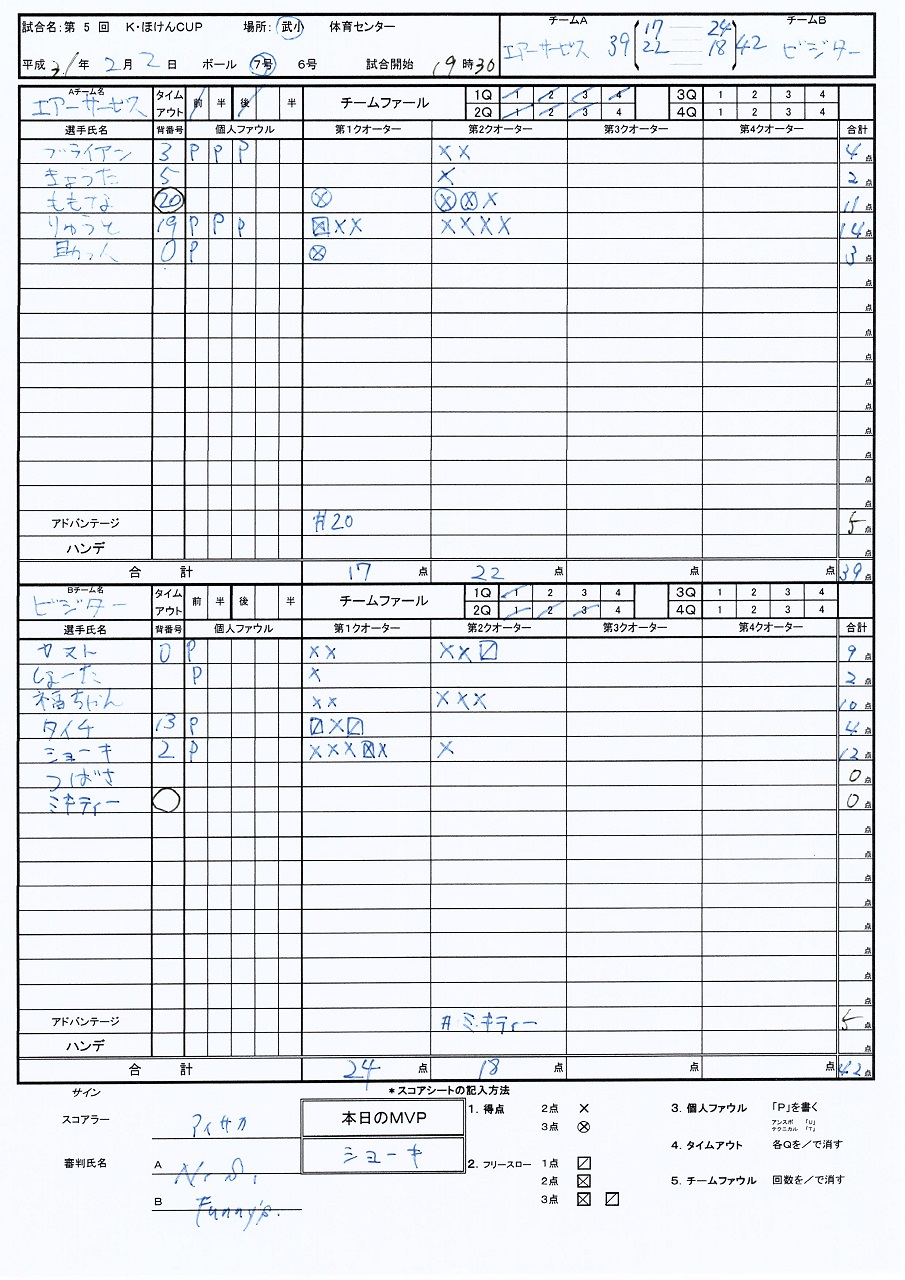 試合名:第 5 回 K・ほけんCUP 場所: 武小 体育センター チームA 17 24 チームB
エアーサービス 39 22 18 42 ビジター
平成 31年 2月 2日 ボール 7号 6号 試合開始 19時30
Aチーム名 エアーサービス タイムアウト 前 半 後 半 チームファール 1Q 1 2 3 4 3Q 1 2 3 4
2Q 1 2 3 4 4Q 1 2 3 4
選手氏名 背番号 個人ファウル 第1クオーター 第2クオーター 第3クオーター 第4クオーター 合計
ブライアン 3 P P P ×× 4点
きょうた 5 × 2点
20 ⊗ ⊗⊗× 11点
りゅうと 19 P P P ☒×× ×××× 14点
助っ人 0 P ⊗ 3点
点
点
点
点
点
点
点
点
点
点
アドバンテージ #20 5点
ハンデ 点
合 計 17点 22点 点 点 39点
Bチーム名 ビジター タイムアウト 前 半 後 半 チームファール 1Q 1 2 3 4 3Q 1 2 3 4
2Q 1 2 3 4 4Q 1 2 3 4
選手氏名 背番号 個人ファウル 第1クオーター 第2クオーター 第3クオーター 第4クオーター 合計
ヤスト 0 P ×× ××⍁ 9点
しょーた P × 2点
福ちゃん ×× ××× 10点
タイチ 13 P ⍁×⍁ 4点
ショーキ 2 P ×××☒× × 12点
つばさ 0点
ミキティー 0点
点
点
点
点
点
点
点
点
アドバンテージ #ミキティー 5点
ハンデ 点
合 計 24点 18点 点 点 42点
サイン *スコアシートの記入方法
スコアラー アイサカ 本日のMVP 1. 得点 2点 × 3. 個人ファウル 「P」を書く
3点 ⊗ アンスポ 「U」
テクニカル 「T」
ショーキ 4. タイムアウト 各Qを/で消す
審判氏名 A 2. フリースロー 1点 ⍁
2点 ☒ 5. チームファウル 回数を/で消す
B Funny's. 3点 ☒ ⍁